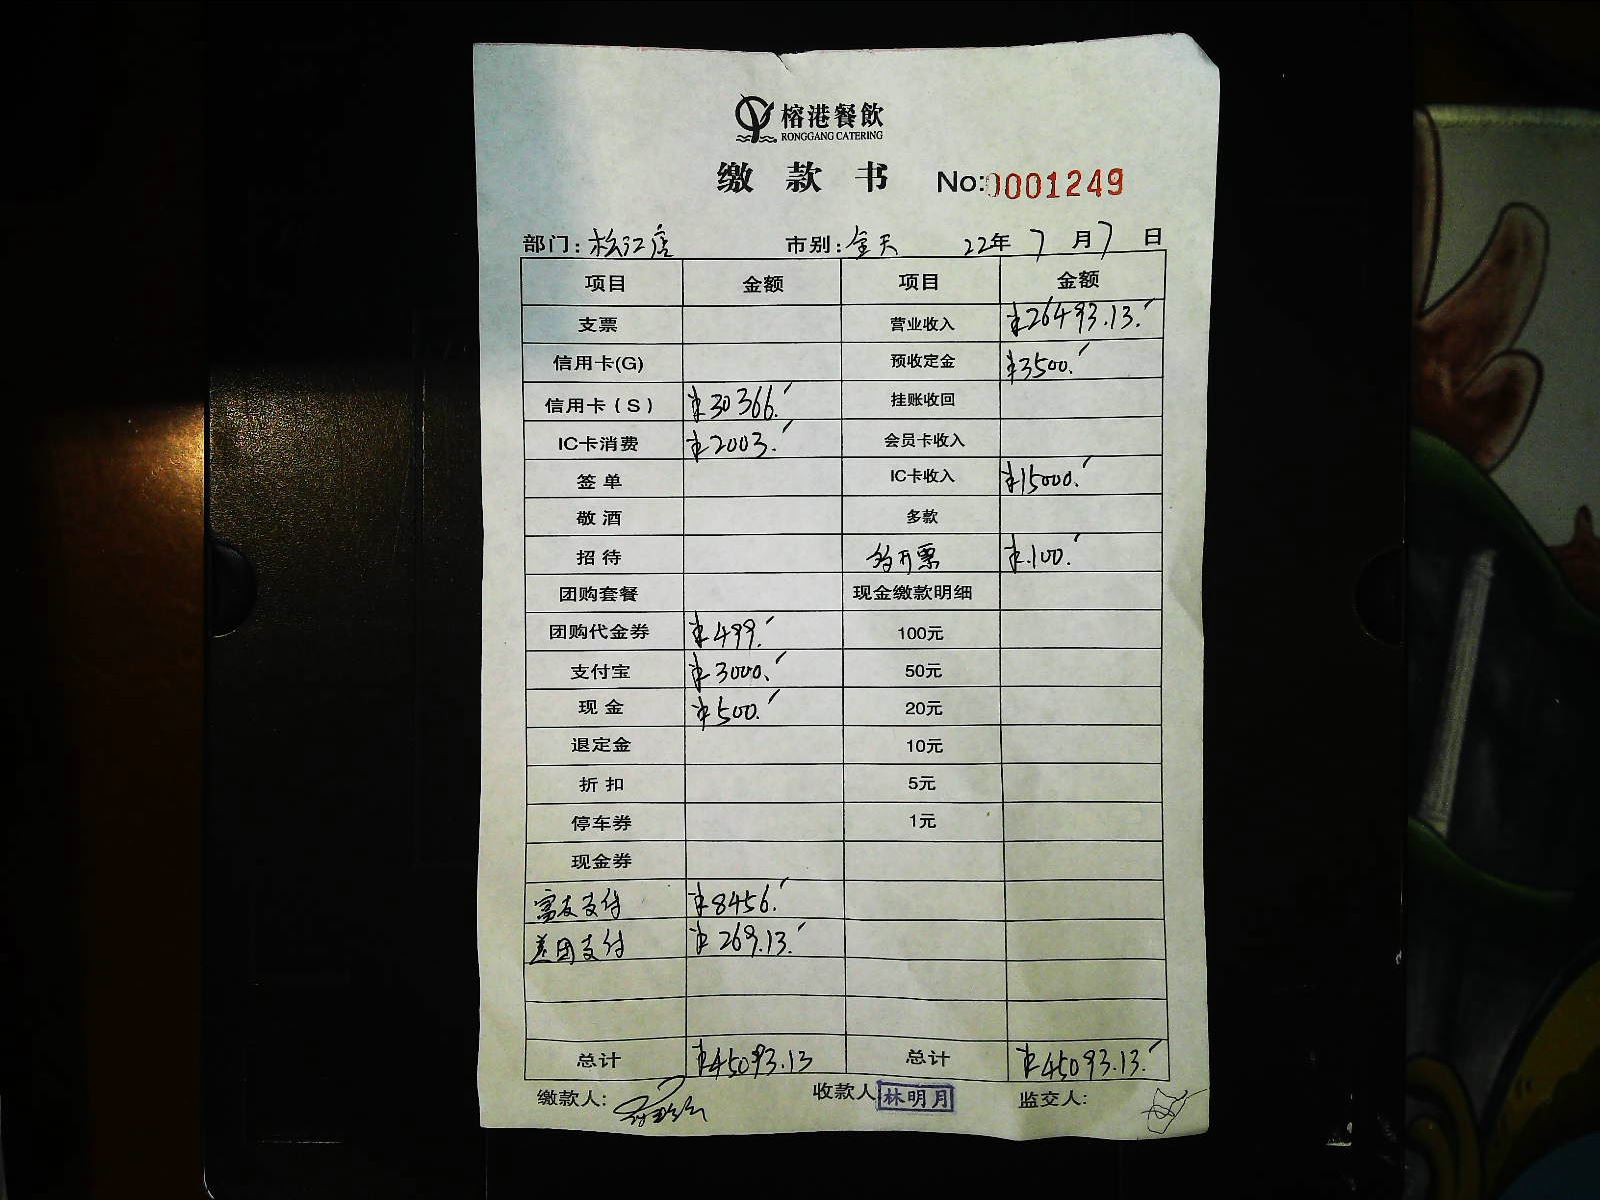 榕港餐飲
RONGGANG CATERING
缴 款 书 No:0001249
部门: 松江店 市别: 全天 22年 7 月 7 日
项目 金额 项目 金额
支票 营业收入 ¥26493.13.
信用卡(G) 预收定金 ¥3500.
信用卡(S) ¥30366. 挂账收回
IC卡消费 ¥2003. 会员卡收入
签 单 IC卡收入 ¥15000.
敬 酒 多款
招 待 多开票 ¥.100.
团购套餐 现金缴款明细
团购代金券 ¥499. 100元
支付宝 ¥3000. 50元
现 金 ¥500. 20元
退定金 10元
折 扣 5元
停车券 1元
现金券
富友支付 ¥8456.
美团支付 ¥269.13.
总计 ¥45093.13 总计 ¥45093.13.
缴款人: 收款人 林明月 监交人: